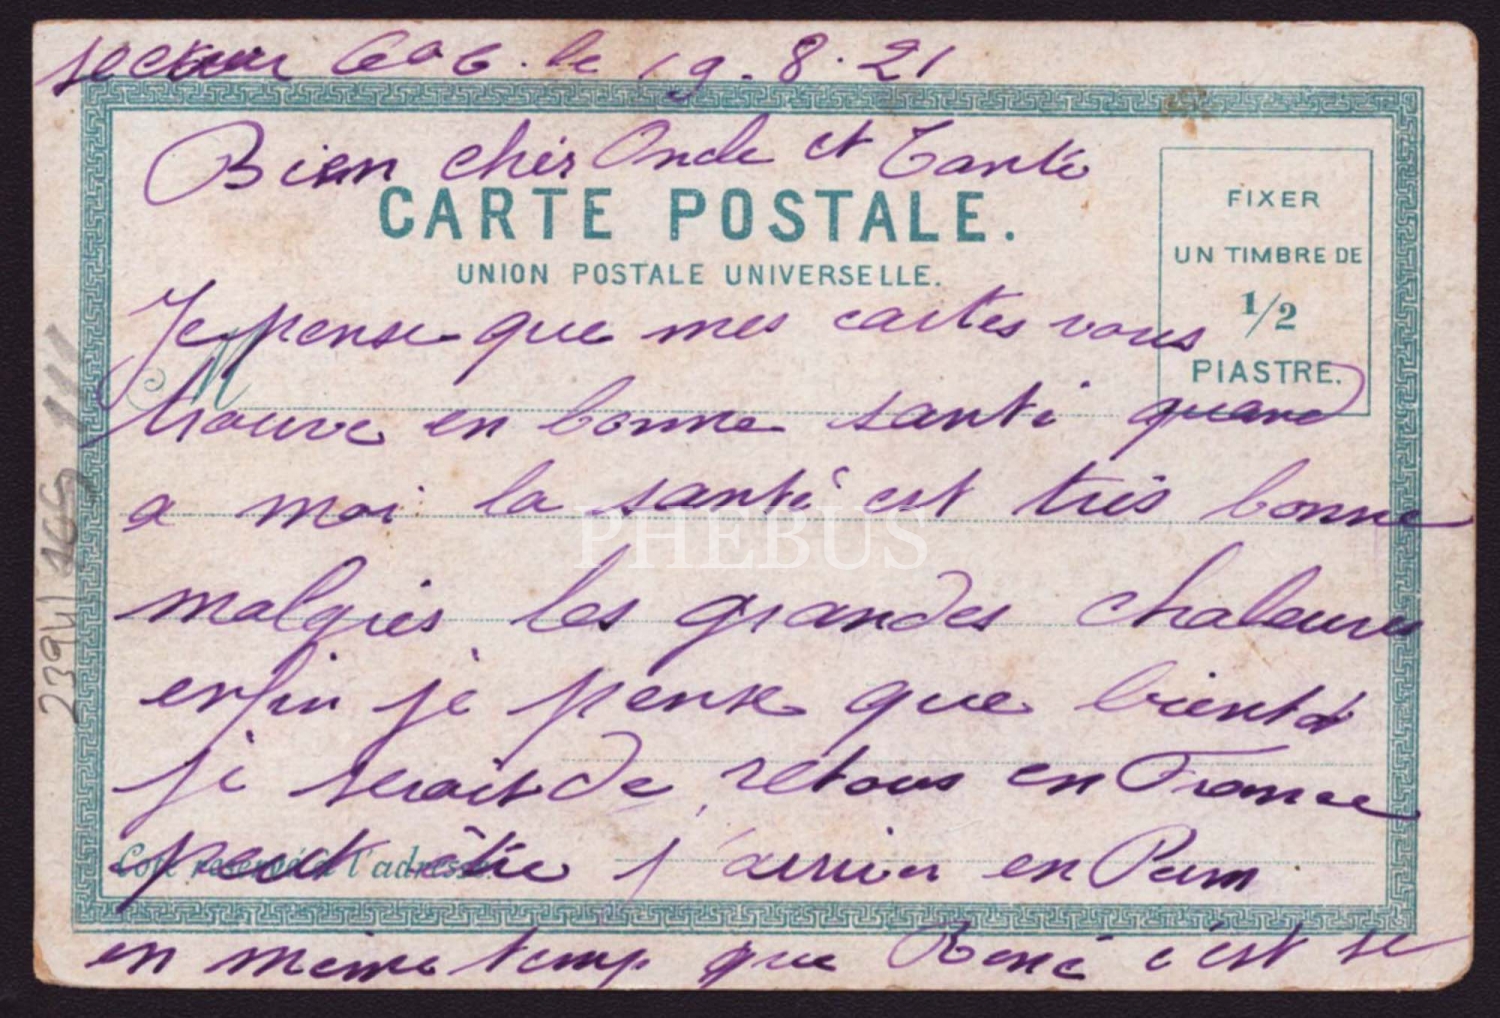 secteur 606. le 19.8.21
Bien chers Oncle et Tante
CARTE POSTALE.
UNION POSTALE UNIVERSELLE.
FIXER
UN TIMBRE DE
1/2
PIASTRE.
Je pense que mes cartes vous
M
trouve en bonne santé quand
a moi la santé est très bonne
PHEBUS
malgrès les grandes chaleures
enfin je pense que bientot
je serait de retour en France
peut être j'arriver en
Coté reservé à l'adresse.
en même temp que René c'est se
2394/165-111